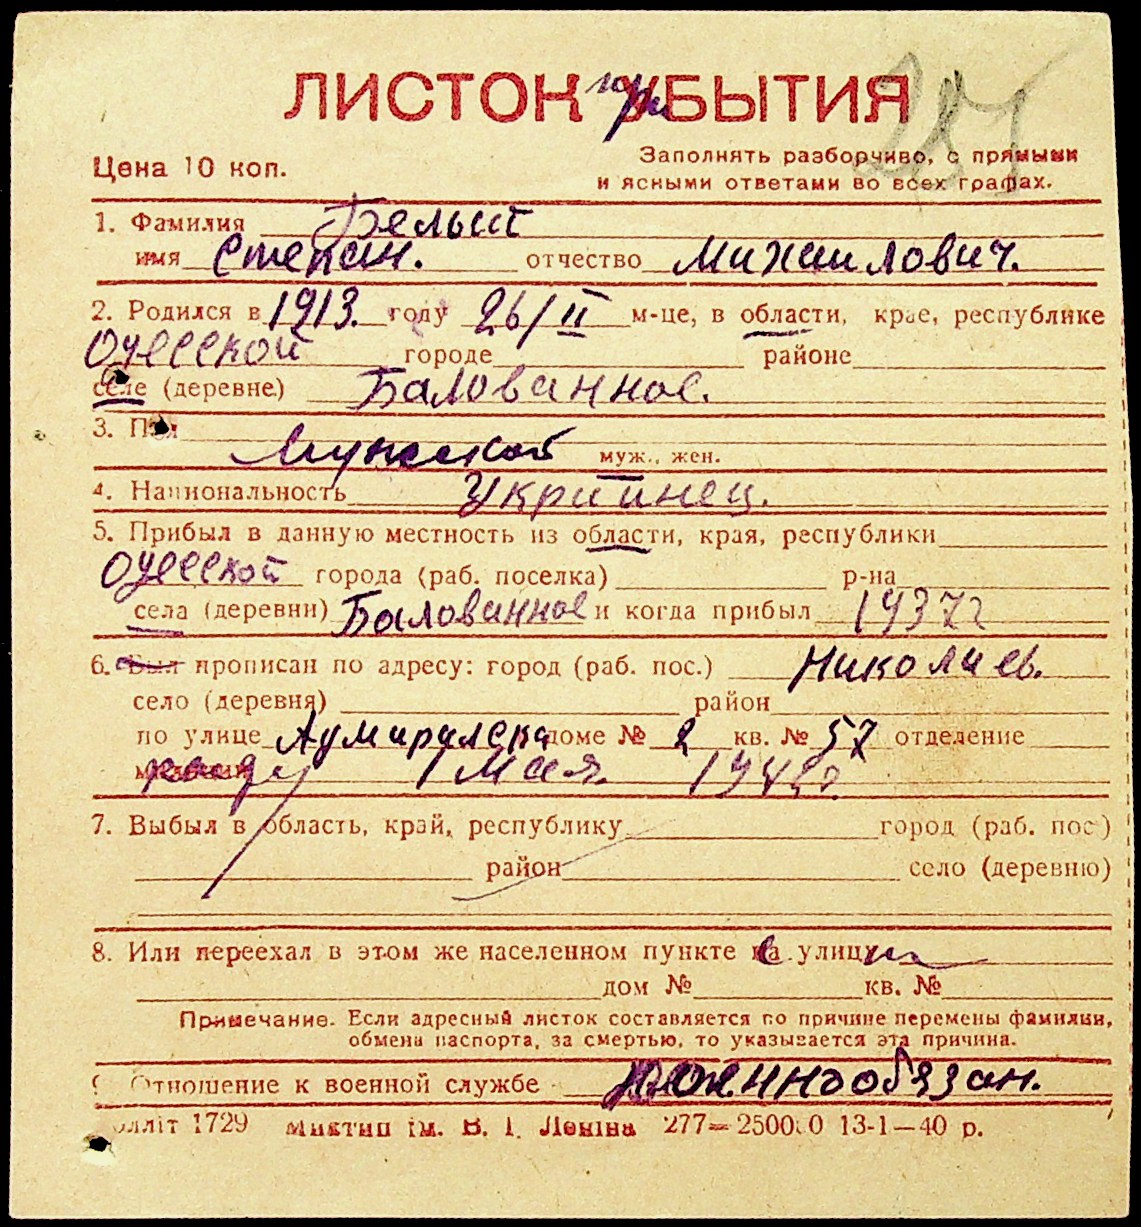 ЛИСТОК при УБЫТИЯ
Цена 10 коп.
Заполнять разборчиво, с прямыми
и ясными ответами во всех графах.
1. Фамилия Белый
имя Степан. отчество Михаилович.
2. Родился в 1913. году 26/II м-це, в области, крае, республике
Одесской городе районе
селе (деревне) Балованное.
3. Пол Мужской муж., жен.
4. Национальность Украинец.
5. Прибыл в данную местность из области, края, республики
Одесской города (раб. поселка) р-на
села (деревни) Балованное и когда прибыл 1937г
6. Был прописан по адресу: город (раб. пос.) Николаев.
село (деревня) район
по улице Адмиральска доме № 2 кв. № 57 отделение
1 мая.
7. Выбыл в область, край, республику город (раб. пос.)
район село (деревню)
8. Или переехал в этом же населенном пункте на улицу
дом № кв. №
Примечание. Если адресный листок составляется по причине перемены фамилии,
обмена паспорта, за смертью, то указывается эта причина.
9. Отношение к военной службе Военнообязан.
1729 Миктип ім. В. І. Леніна 277—250000 13-1—40 р.